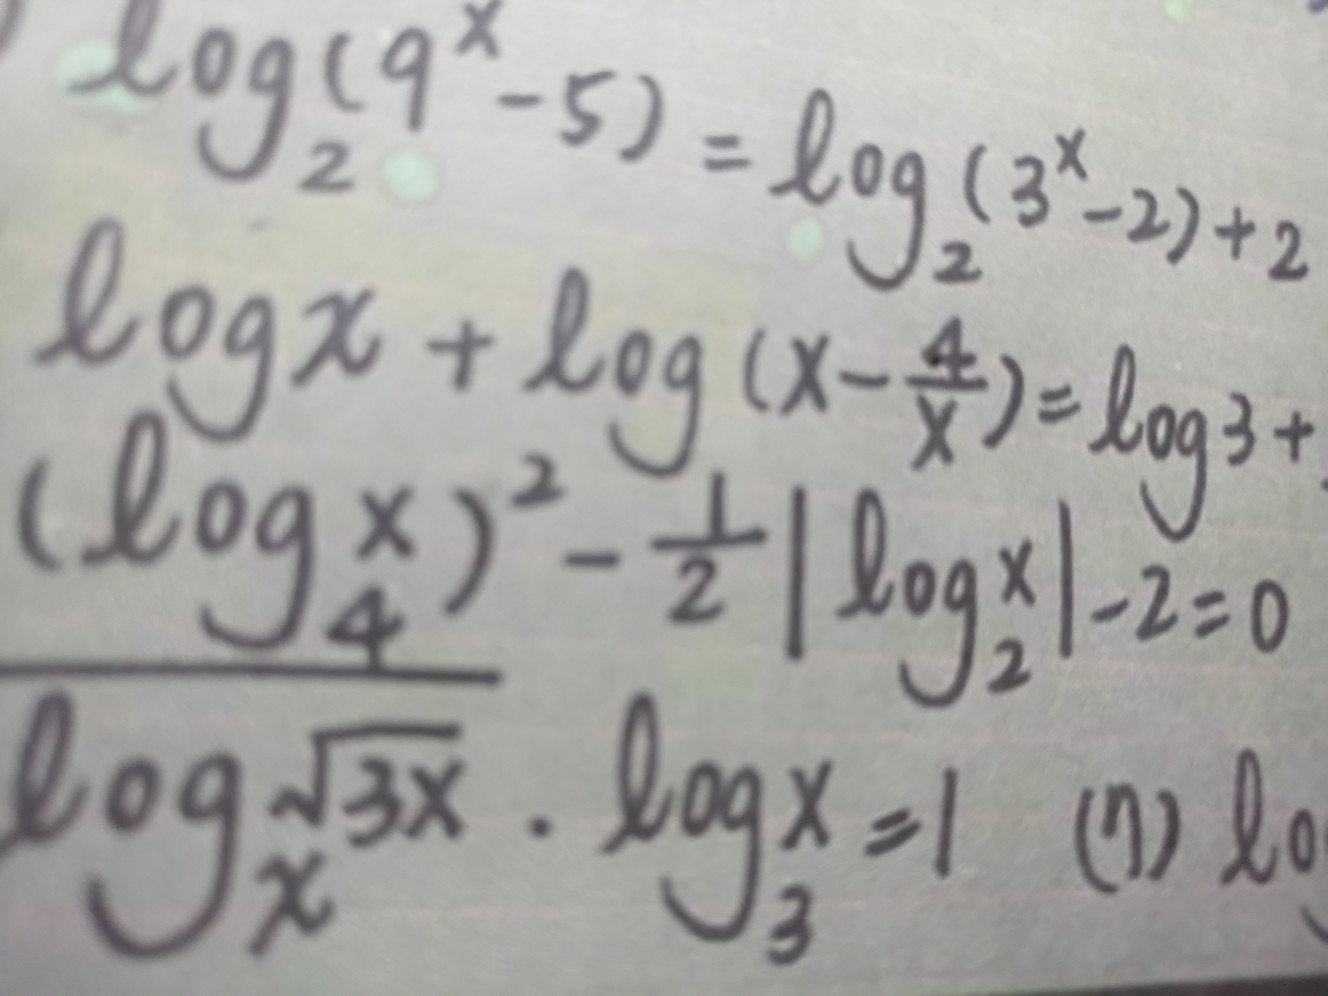 log₂(9ˣ-5) = log₂(3ˣ-2)+2
log x + log (x - 4/x) = log 3 +
(log₄ x)² - 1/2 |log₂ x| - 2 = 0
logₓ √3x . log₃ x = 1 (7) lo